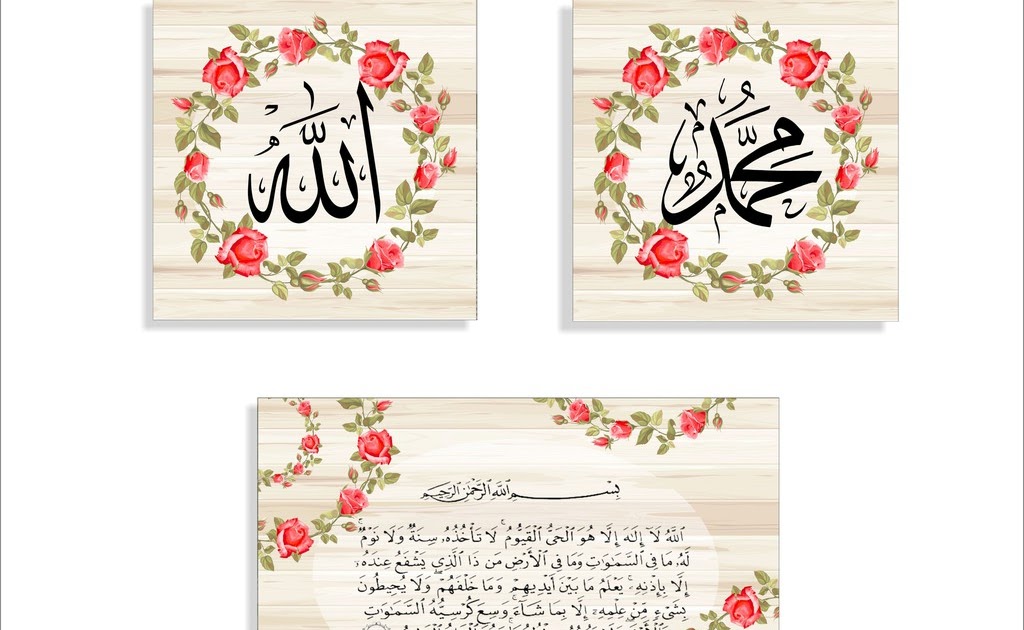 الله
محمد
بسم الله الرحمن الرحيم
ٱللَّهُ لَآ إِلَٰهَ إِلَّا هُوَ ٱلْحَىُّ ٱلْقَيُّومُ ۚ لَا تَأْخُذُهُۥ سِنَةٌ وَلَا نَوْمٌ ۚ
لَّهُۥ مَا فِى ٱلسَّمَٰوَٰتِ وَمَا فِى ٱلْأَرْضِ ۗ مَن ذَا ٱلَّذِى يَشْفَعُ عِندَهُۥٓ
إِلَّا بِإِذْنِهِۦ ۚ يَعْلَمُ مَا بَيْنَ أَيْدِيهِمْ وَمَا خَلْفَهُمْ ۖ وَلَا يُحِيطُونَ
بِشَىْءٍ مِّنْ عِلْمِهِۦٓ إِلَّا بِمَا شَآءَ ۚ وَسِعَ كُرْسِيُّهُ ٱلسَّمَٰوَٰتِ